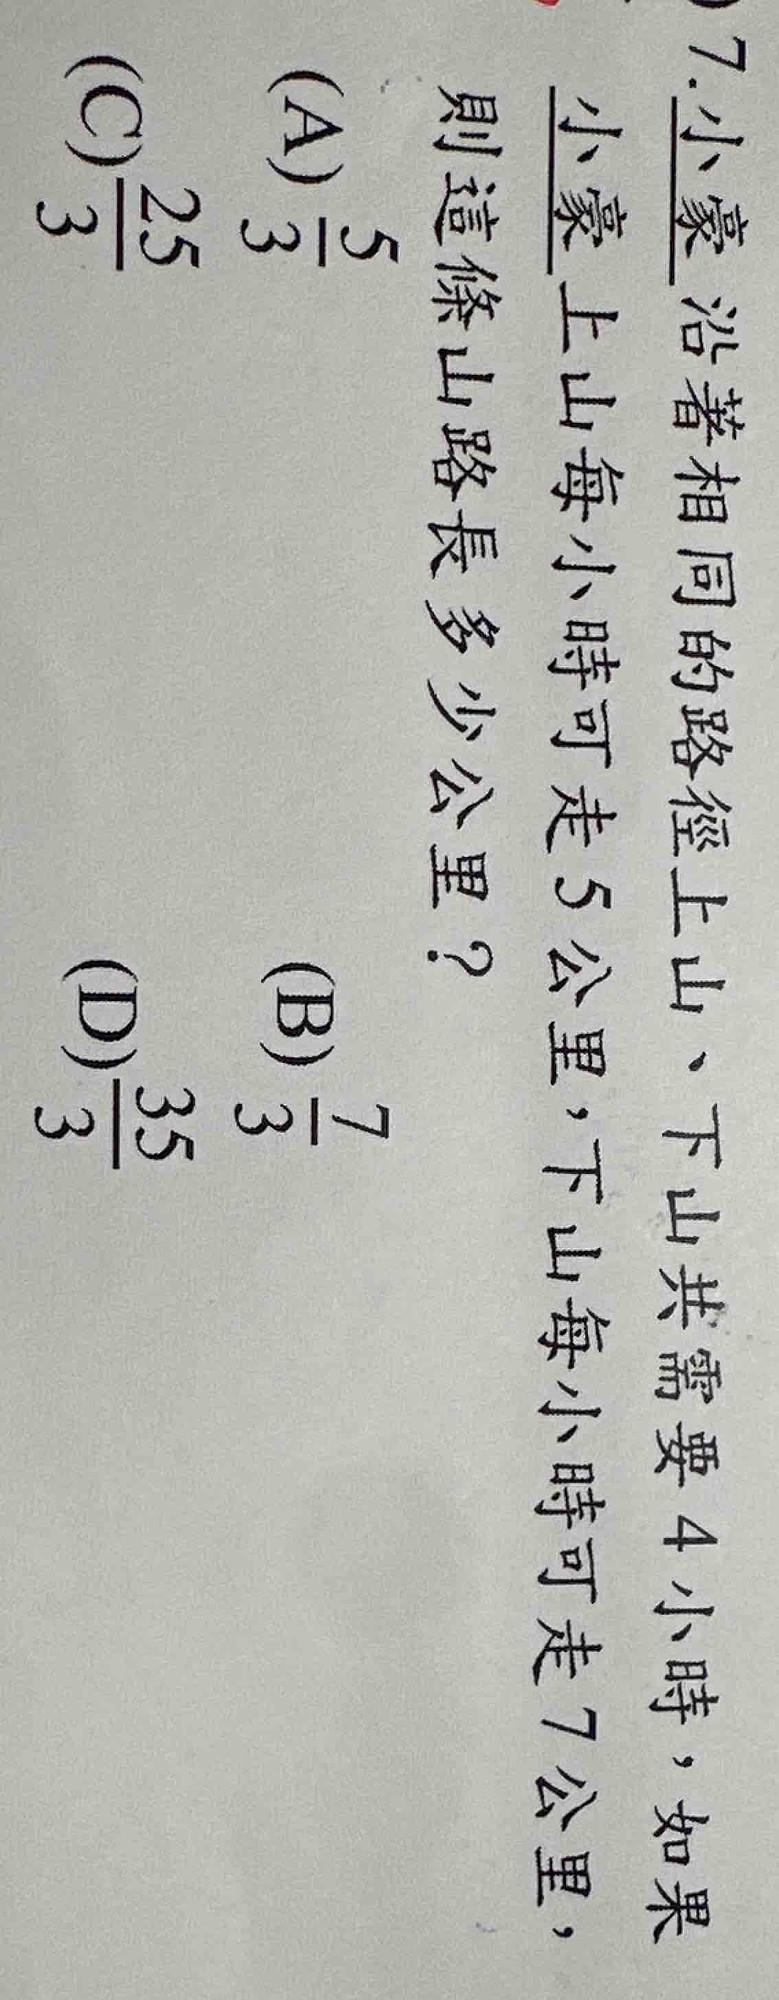 ) 7. 小豪沿著相同的路徑上山、下山共需要 4 小時，如果
小豪上山每小時可走 5 公里，下山每小時可走 7 公里，
則這條山路長多少公里？
(A) 5/3 (B) 7/3
(C) 25/3 (D) 35/3